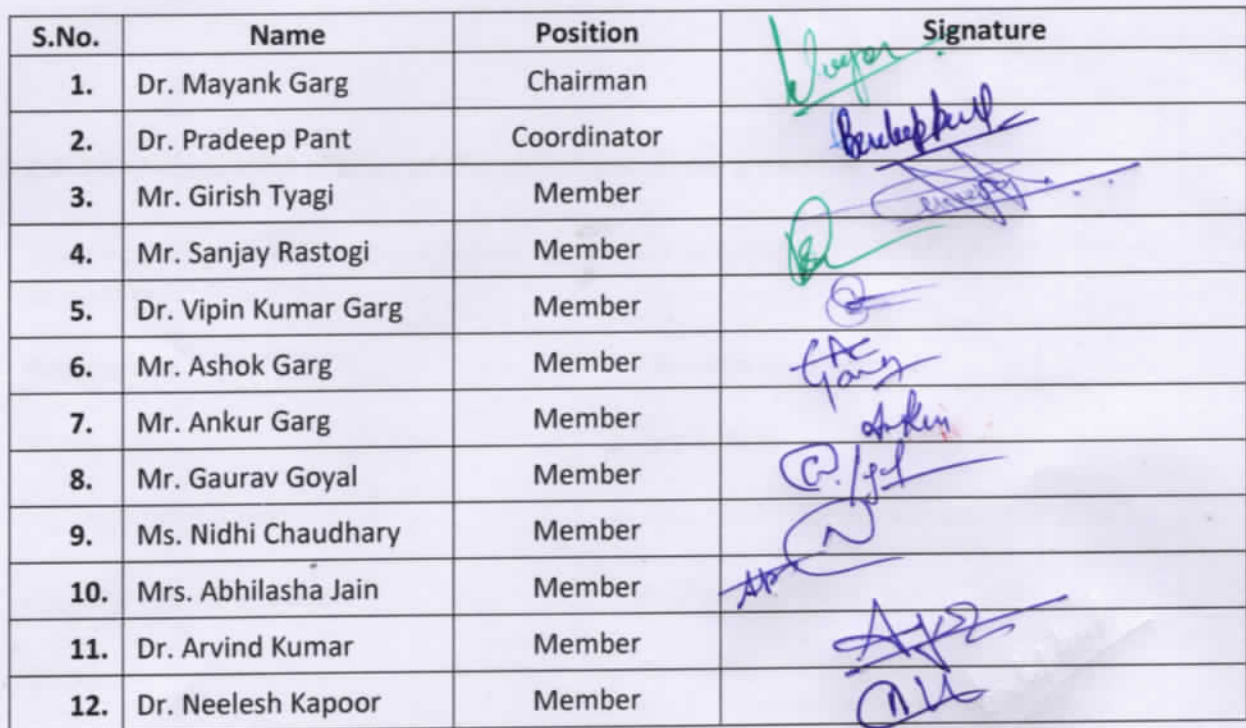 S.No. Name Position Signature
1. Dr. Mayank Garg Chairman
2. Dr. Pradeep Pant Coordinator
3. Mr. Girish Tyagi Member
4. Mr. Sanjay Rastogi Member
5. Dr. Vipin Kumar Garg Member
6. Mr. Ashok Garg Member Garg
7. Mr. Ankur Garg Member
8. Mr. Gaurav Goyal Member
9. Ms. Nidhi Chaudhary Member
10. Mrs. Abhilasha Jain Member
11. Dr. Arvind Kumar Member
12. Dr. Neelesh Kapoor Member